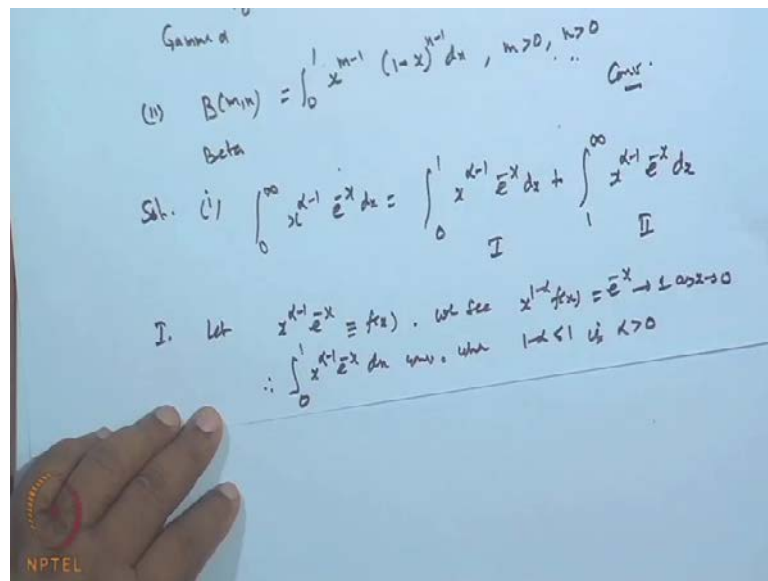 Gamma
(ii) B(m,n) = ∫₀¹ x^{m-1} (1-x)^{n-1} dx , m>0, n>0
Conv.
Beta
Sol. (i) ∫₀^∞ x^{α-1} e^{-x} dx = ∫₀¹ x^{α-1} e^{-x} dx + ∫₁^∞ x^{α-1} e^{-x} dx
I II
I. Let x^{α-1} e^{-x} ≡ f(x). we see x^{1-α} f(x) = e^{-x} → 1 as x→0
∴ ∫₀¹ x^{α-1} e^{-x} dx conv. when 1-α<1 i.e. α>0
NPTEL